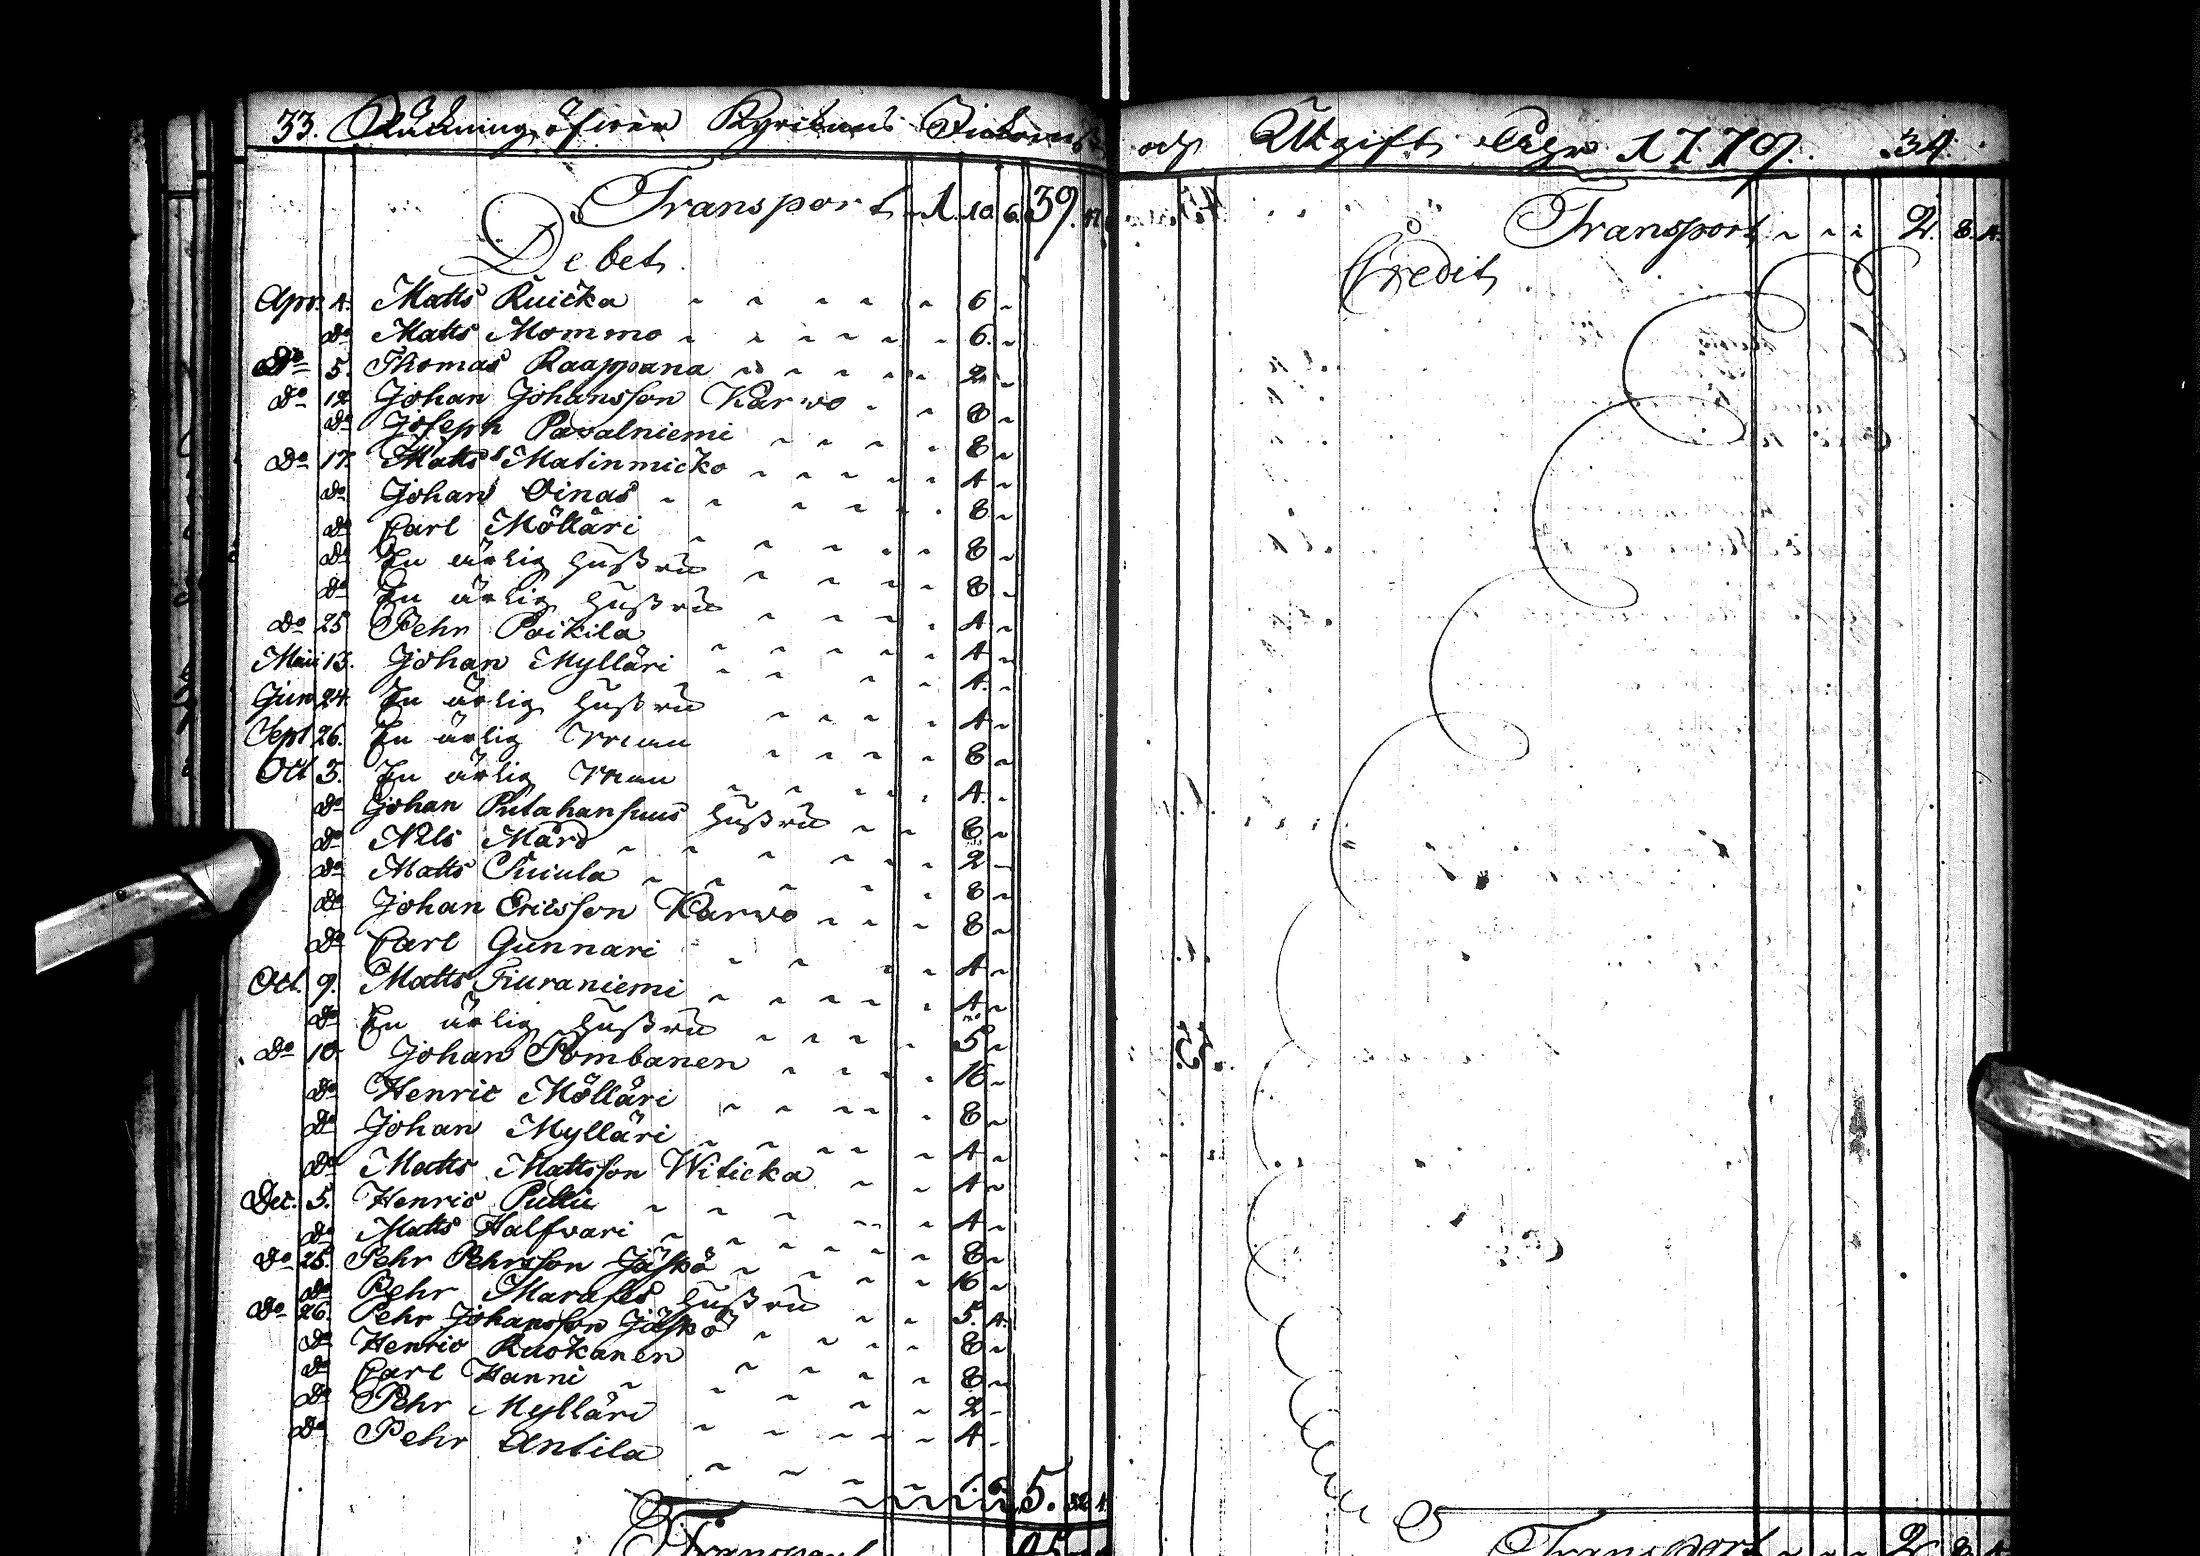 33. Räckning öfwer Kyrckians Inkomst
Transport 1. 10. 6. 39.
Debet
Apr. 4. Matts Kuicka 6
do Matts Mommo 6.
do 5. Thomas Kaappana 2
do 12 Johan Johansson Karwo 8
do Joseph Pavalniemi 8
do 17. Matts Matinmicko 4
do Johan Oinas 8
do Carl Mölläri 8
do En ärlig Hustru 8.
do En ärlig Hustru 4
do 25 Pehr Poikila 4
Maii 13. Johan Mylläri 4.
Jun. 24. En ärlig Hustru 4
Sept. 26. En ärlig Man 8
Oct. 3. En ärlig Man 4.
do Johan Putahansuus Hustru 8
do Nils Mård 2
do Matts Suiula 8
do Johan Ericsson Karwo 8
do Carl Gunnari 4
Oct. 9. Matts Tiuraniemi 4
do En ärlig Hustru 5
do 10. Johan Pombanen 16
do Henric Mölläri 8
do Johan Mylläri 4
do Matts Mattsson Witicka 4
Dec. 5. Henric 4
do Matts Halfvari 8
do 25. Pehr Pehrsson Jäskö 16
do Pehr Hustru 5. 4.
do 26. Pehr Johansson Jäskö 8
do Henric Ruokanen 8
do Carl Hanni 2
do Pehr Mylläri 4
do Pehr Antila
1. 6. 5. 32 1.
Transport
och Utgift Pro 1779. 34.
Transport 2. 8. 4.
Credit
Transport 2. 8.